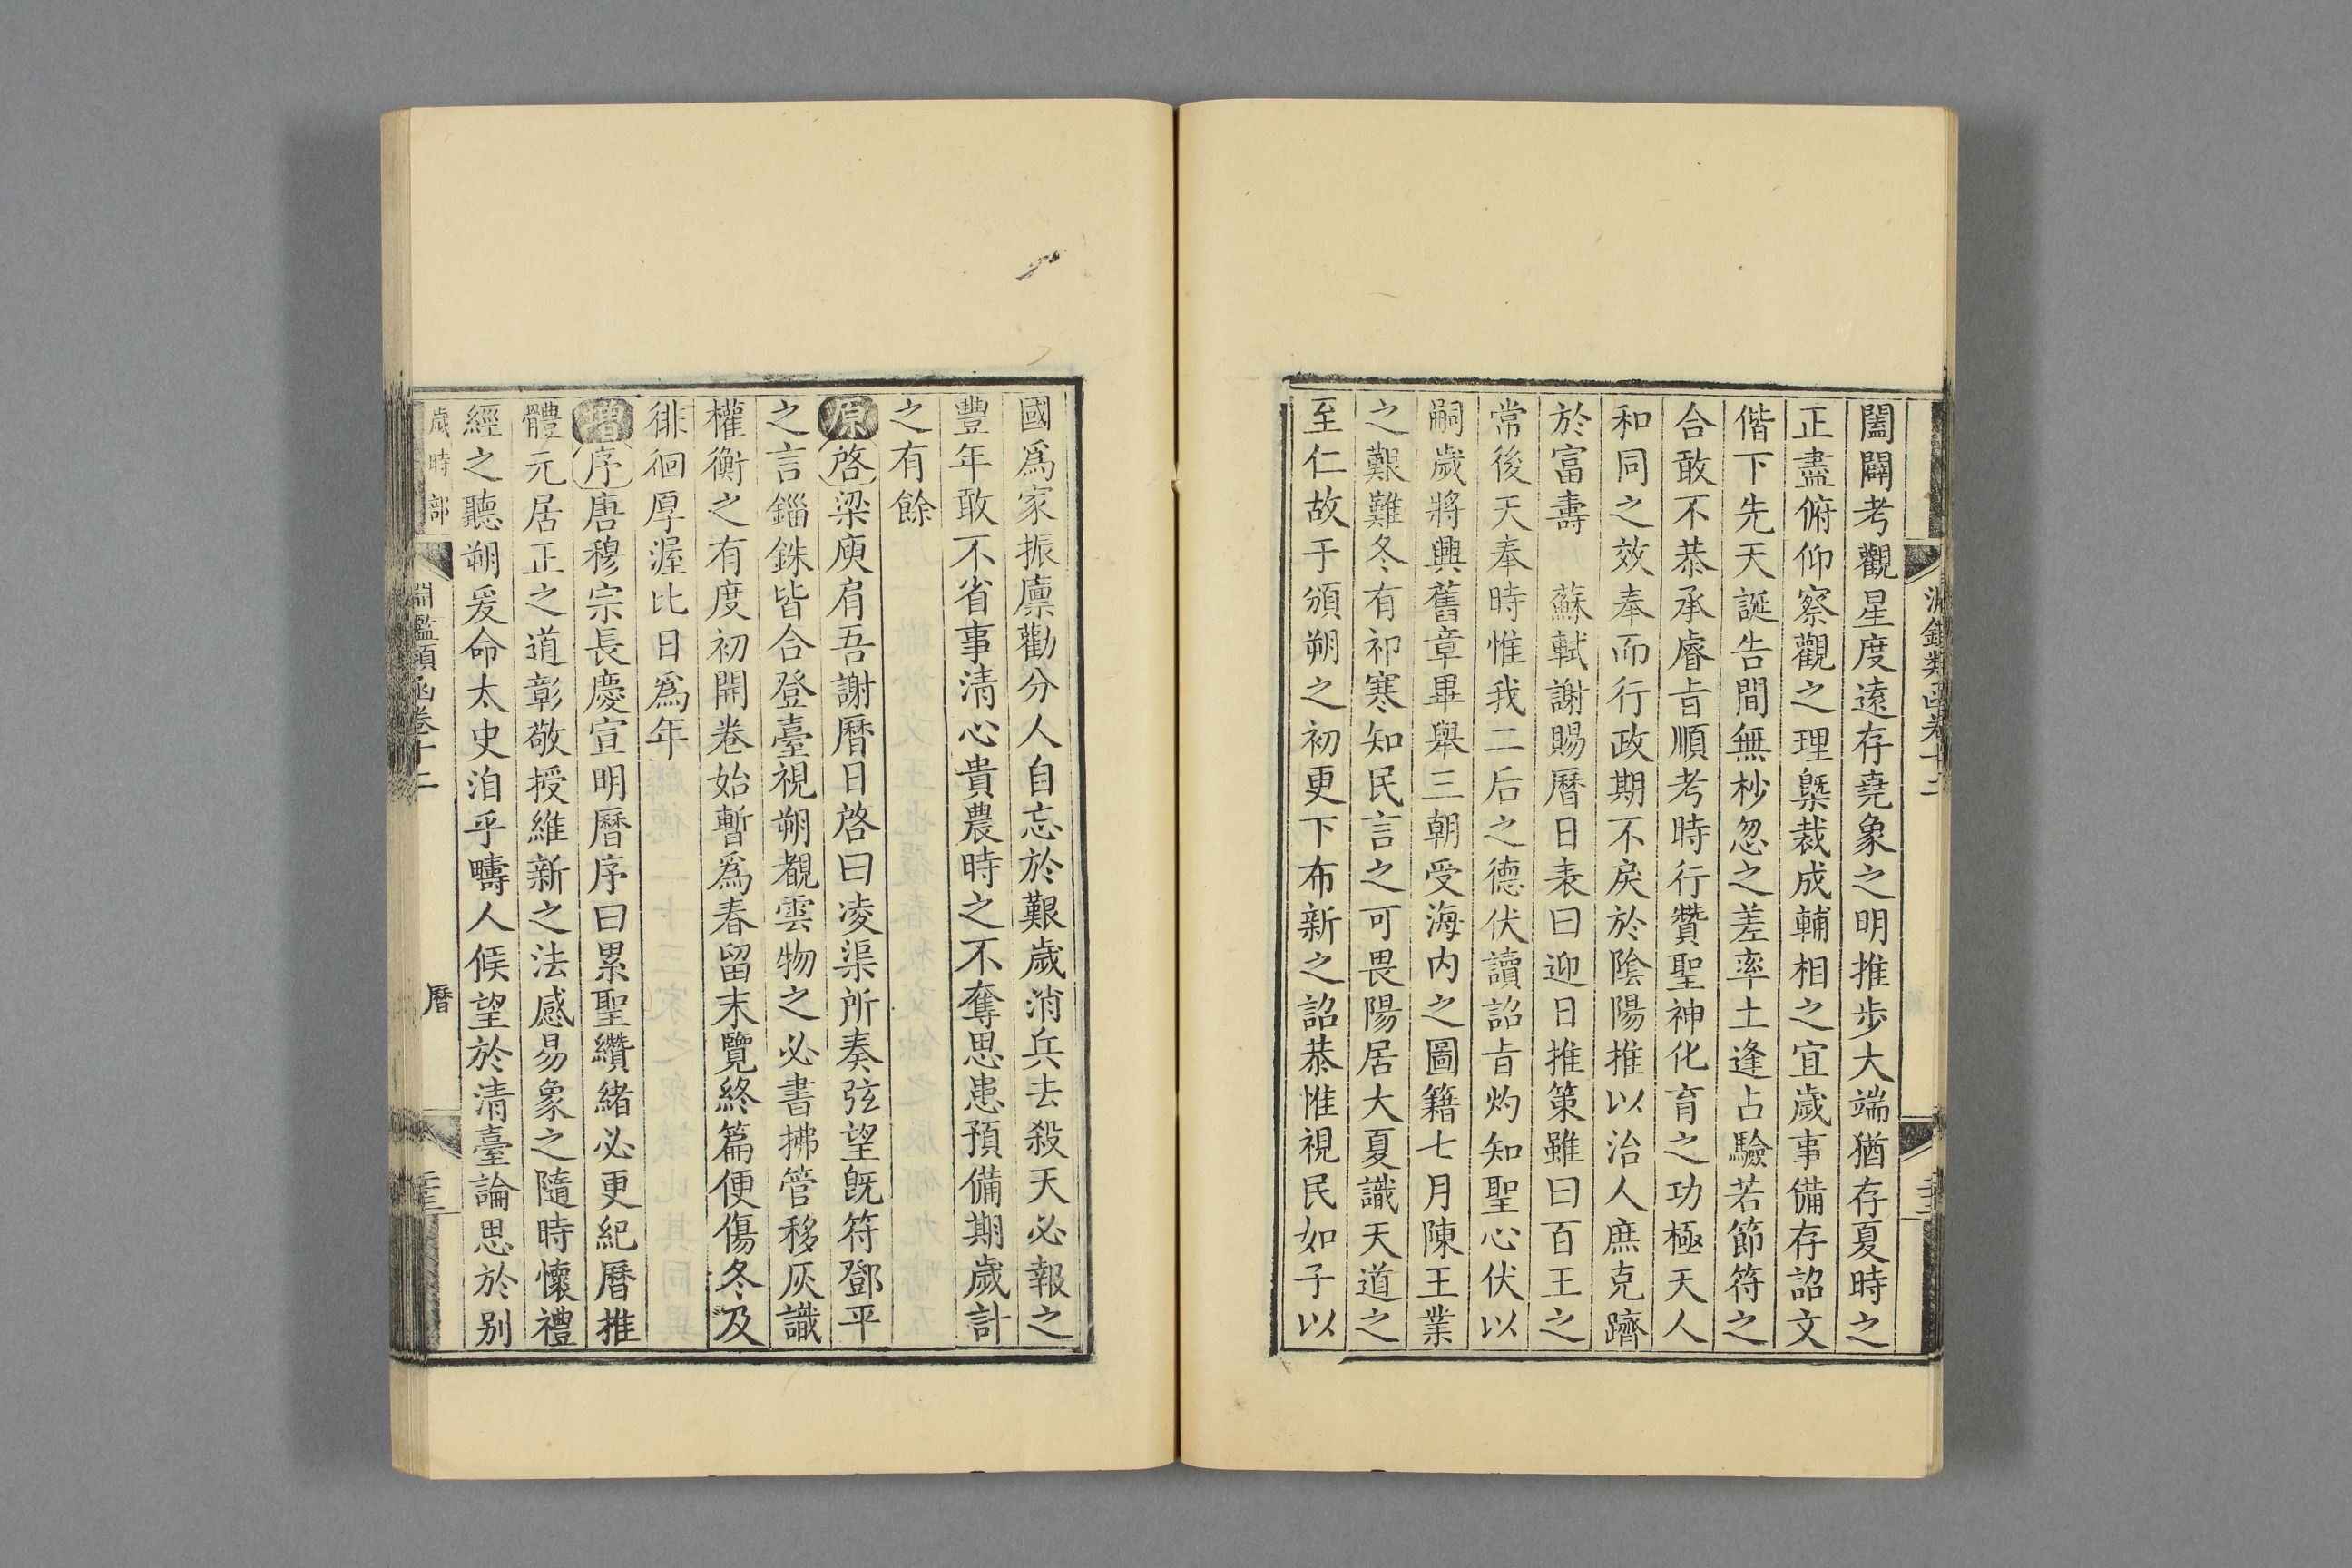 淵鑑類函卷十二
闔闢考觀星度遠存堯象之明推步大端猶存夏時之
正盡俯仰察觀之理槩裁成輔相之宜歲事備存詔文
偕下先天誕告間無杪忽之差率土逢占驗若節符之
合敢不恭承睿旨順考時行贊聖神化育之功極天人
和同之效奉而行政期不戾於陰陽推以治人庶克躋
於富壽　蘇軾謝賜曆日表曰迎日推策雖曰百王之
常後天奉時惟我二后之德伏讀詔旨灼知聖心伏以
嗣歲將興舊章畢舉三朝受海内之圖籍七月陳王業
之艱難冬有祁寒知民言之可畏陽居大夏識天道之
至仁故于頒朔之初更下布新之詔恭惟視民如子以
國爲家振廩勸分人自忘於艱歲消兵去殺天必報之
豐年敢不省事清心貴農時之不奪思患預備期歲計
之有餘
原啓梁庾肩吾謝曆日啓曰凌渠所奏弦望旣符鄧平
之言錙銖皆合登臺視朔覩雲物之必書拂管移灰識
權衡之有度初開卷始暫爲春留末覽終篇便傷冬及
徘徊厚渥比日爲年
增序唐穆宗長慶宣明曆序曰累聖纘緒必更紀曆推
體元居正之道彰敬授維新之法感易象之隨時懷禮
經之聽朔爰命太史洎乎疇人候望於清臺論思於别
歲時部　淵鑑類函卷十二　曆